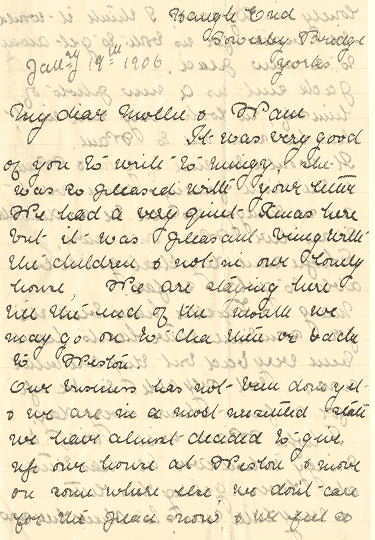 Haugh End
Sowerby Bridge
Jany 19th 1906. Yorks
My dear Mollie &
It was very good
of you to write to . She
was so pleased with your letter
We had a very quiet Xmas here
but it was pleasant being with
the children & not in our lonely
house, We are staying here
till the end of the month we
may go on to then or back
to Weston
Our business has not been done yet
& we are in a most unsettled state
we have almost decided to give
up our house at Weston & move
on some where else we don't care
for the place now & we feel so